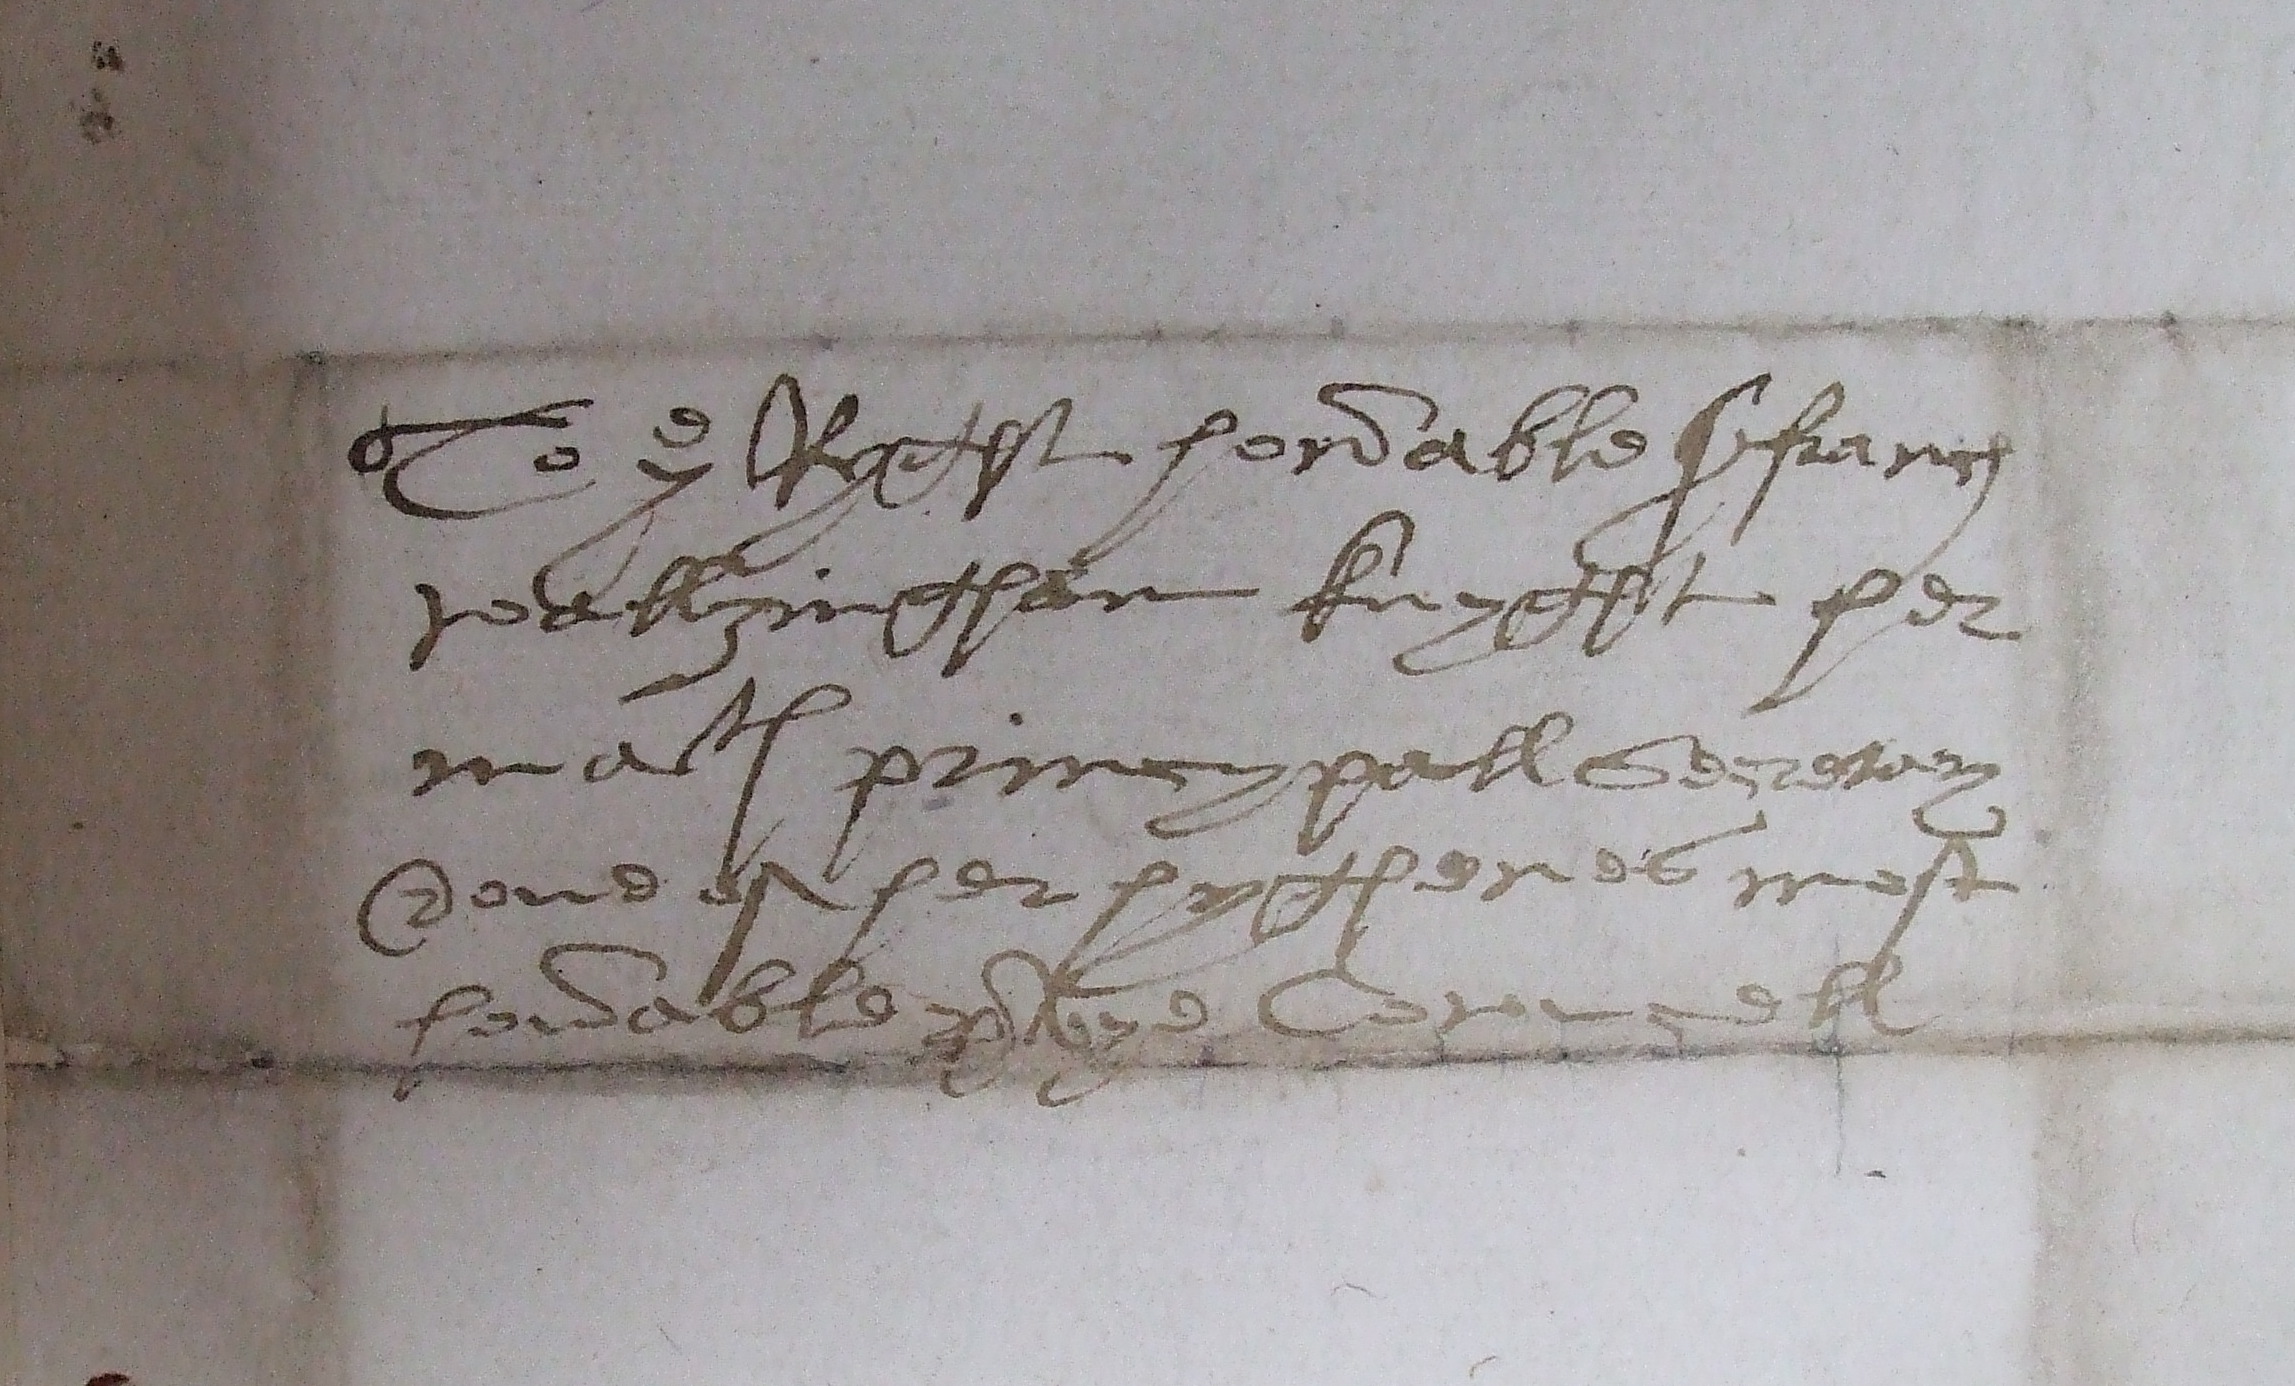 To ye Ryght honorable Sr franncs
wallzingham knyght her
maties princypall Secretary
& one of her hyghenes most
honorable pryvye Counsell